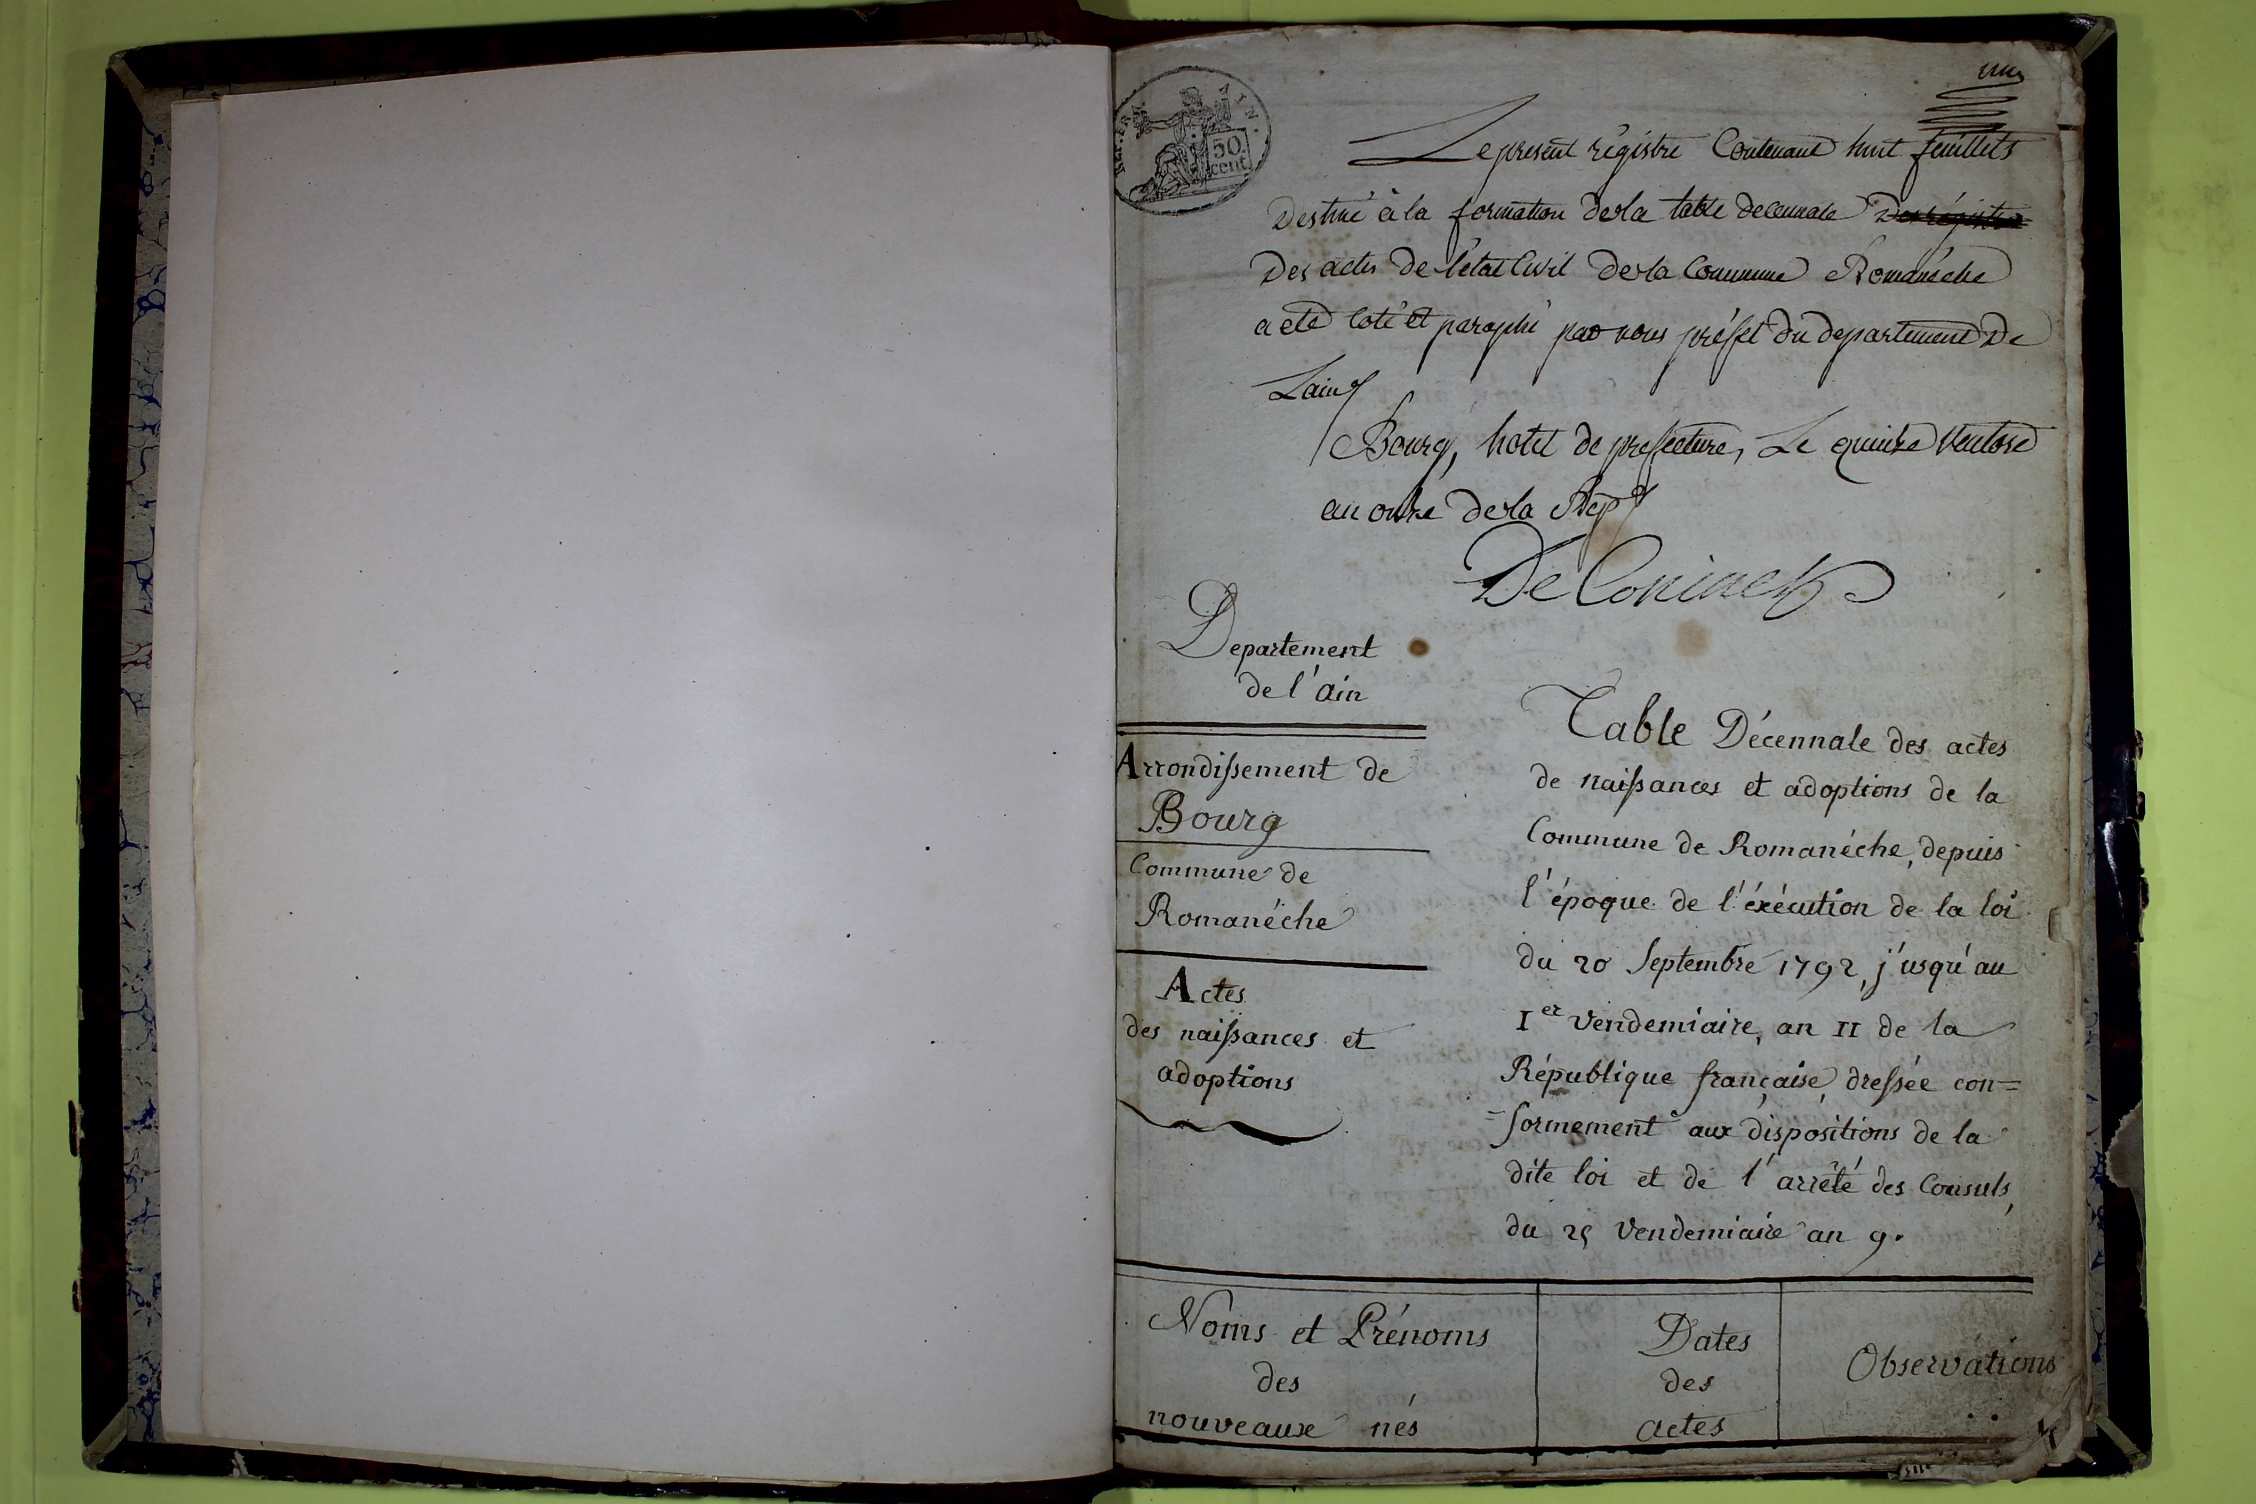 une
REP. FRA.
AIN.
50
cent
Le present régistre Contenant huit feuillets
Destiné à la formation de la table decennale Des régistres
Des actes de l'état Civil de la Commune Romanéche
a eté Coté et paraphé par nous préfet du departement De
Lain
Bourg, hotel de prefecture, Le quinze Ventose
an onze de la Rep
De Coninck
Departement
de l'ain
Arrondissement de
Bourg
Commune de
Romanéche
Actes
des naissances et
adoptions
Table Décennale des actes
de naissances et adoptions de la
Commune de Romanéche, depuis
l'époque de l'éxécution de la loi
du 20 Septembre 1792, j'usqu'au
1er Vendemiaire, an 11 de la
République française, dressée con=
=formement aux dispositions de la
dite loi et de l'arrêté des Consuls,
du 25 Vendemiaire an 9.
Noms et Prénoms
des
nouveaux nés
Dates
des
actes
Observations